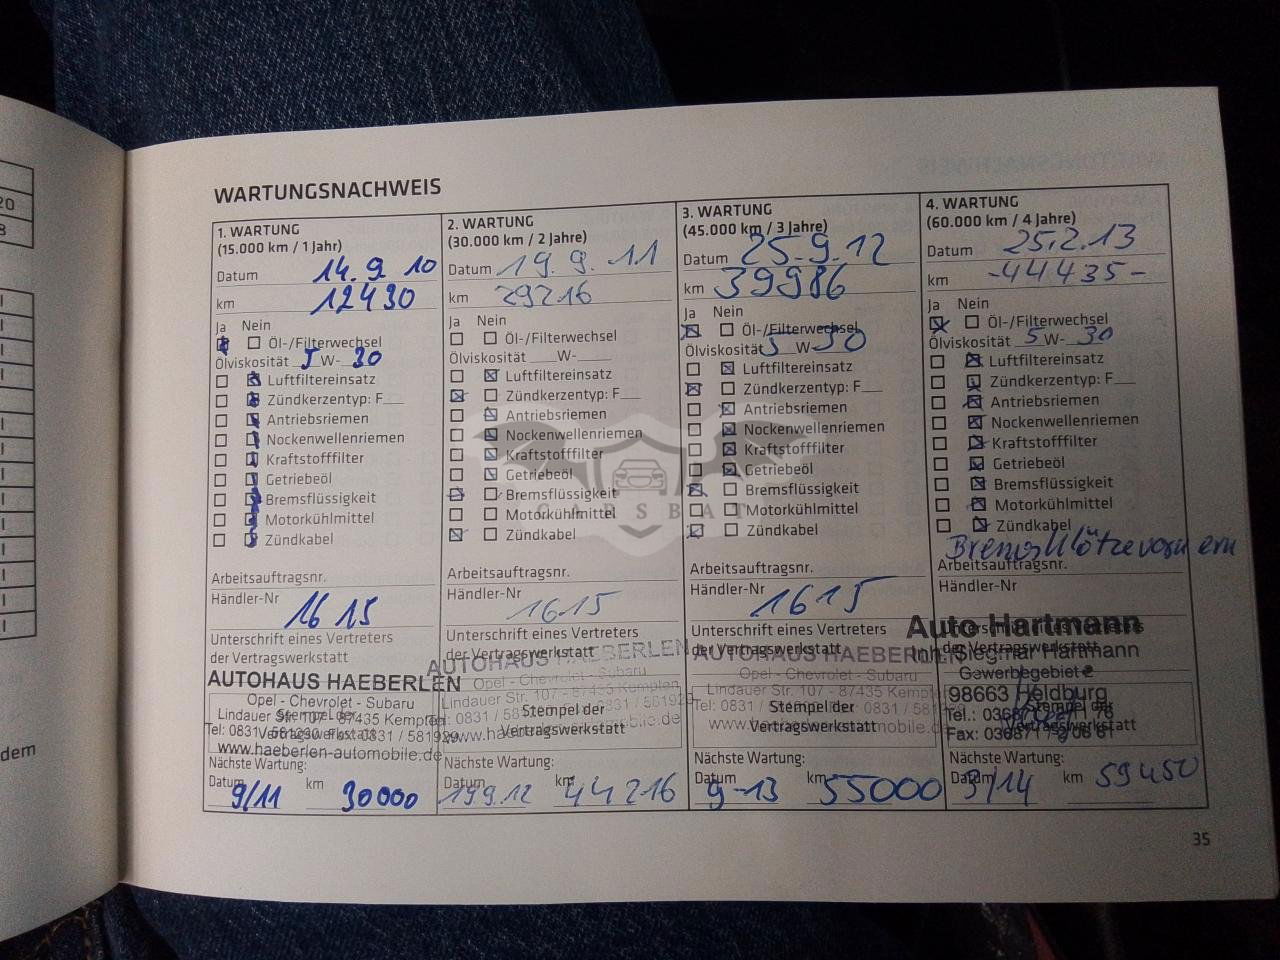 20
8
dem
WARTUNGSNACHWEIS
1. WARTUNG
(15.000 km / 1 Jahr)
Datum 14.9.10
km 12430
Ja Nein
Öl-/Filterwechsel
Ölviskosität 5 W- 30
Luftfiltereinsatz
Zündkerzentyp: F
Antriebsriemen
Nockenwellenriemen
Kraftstofffilter
Getriebeöl
Bremsflüssigkeit
Motorkühlmittel
Zündkabel
Arbeitsauftragsnr.
Händler-Nr
1615
Unterschrift eines Vertreters
der Vertragswerkstatt
AUTOHAUS HAEBERLEN
Opel - Chevrolet - Subaru
Stempel der
Lindauer Str. 107 - 87435 Kempten
Vertragswerkstatt
www.haeberlen-automobile.de
Nächste Wartung:
Datum 9/11 km 30000
2. WARTUNG
(30.000 km / 2 Jahre)
Datum 19.9.11
km 29216
Ja Nein
Öl-/Filterwechsel
Ölviskosität W-
Luftfiltereinsatz
Zündkerzentyp: F
Antriebsriemen
Nockenwellenriemen
Kraftstofffilter
Getriebeöl
Bremsflüssigkeit
Motorkühlmittel
Zündkabel
Arbeitsauftragsnr.
Händler-Nr
1615
Unterschrift eines Vertreters
der Vertragswerkstatt
AUTOHAUS HAEBERLEN
Opel - Chevrolet - Subaru
Lindauer Str. 107 - 87435 Kempten
Stempel der
Vertragswerkstatt
Nächste Wartung:
Datum 19.9.12 km 44216
3. WARTUNG
(45.000 km / 3 Jahre)
Datum 25.9.12
km 39986
Ja Nein
Öl-/Filterwechsel
Ölviskosität 5 W- 30
Luftfiltereinsatz
Zündkerzentyp: F
Antriebsriemen
Nockenwellenriemen
Kraftstofffilter
Getriebeöl
Bremsflüssigkeit
Motorkühlmittel
Zündkabel
Arbeitsauftragsnr.
Händler-Nr
1615
Unterschrift eines Vertreters
der Vertragswerkstatt
AUTOHAUS HAEBERLEN
Opel - Chevrolet - Subaru
Lindauer Str. 107 - 87435
Stempel der
Vertragswerkstatt
Nächste Wartung:
Datum 9-13 km 55000
4. WARTUNG
(60.000 km / 4 Jahre)
Datum 25.2.13
km -44435-
Ja Nein
Öl-/Filterwechsel
Ölviskosität 5 W- 30
Luftfiltereinsatz
Zündkerzentyp: F
Antriebsriemen
Nockenwellenriemen
Kraftstofffilter
Getriebeöl
Bremsflüssigkeit
Motorkühlmittel
Zündkabel
Bremsklötze vorn
Arbeitsauftragsnr.
Händler-Nr
Auto Hartmann
der Vertragswerkstatt
Inh. Siegmar Hartmann
Gewerbegebiet 2
98663 Heldburg
Stempel der
Vertragswerkstatt
Nächste Wartung:
Datum 3/14 km 59450
CARSBAT
35